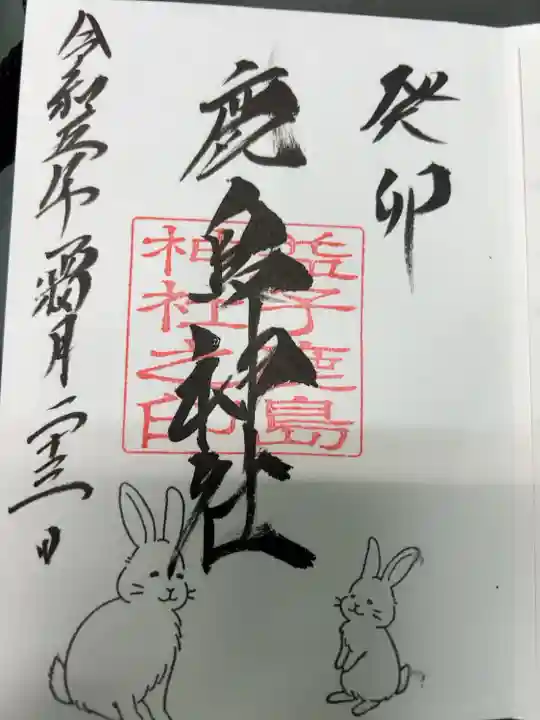 癸卯
鹿島神社
子鹿島
神社之印
令和五年霜月二十三日